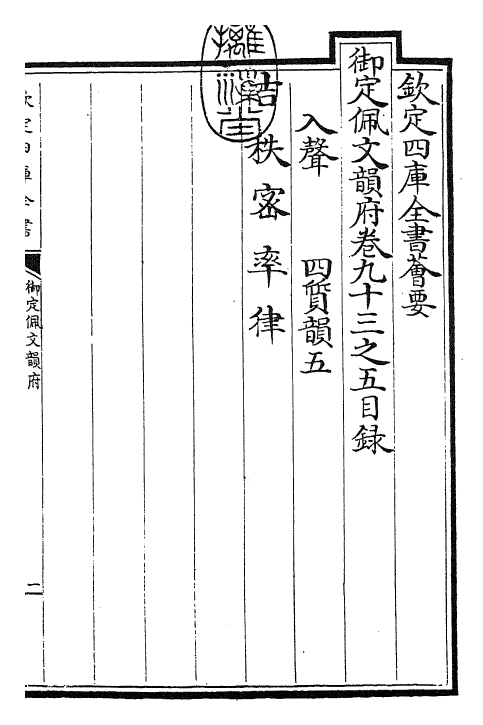 欽定四庫全書薈要
御定佩文韻府卷九十三之五目録
入聲　四質韻五
吉秩宻率律
欽定四庫全書
御定佩文韻府
二